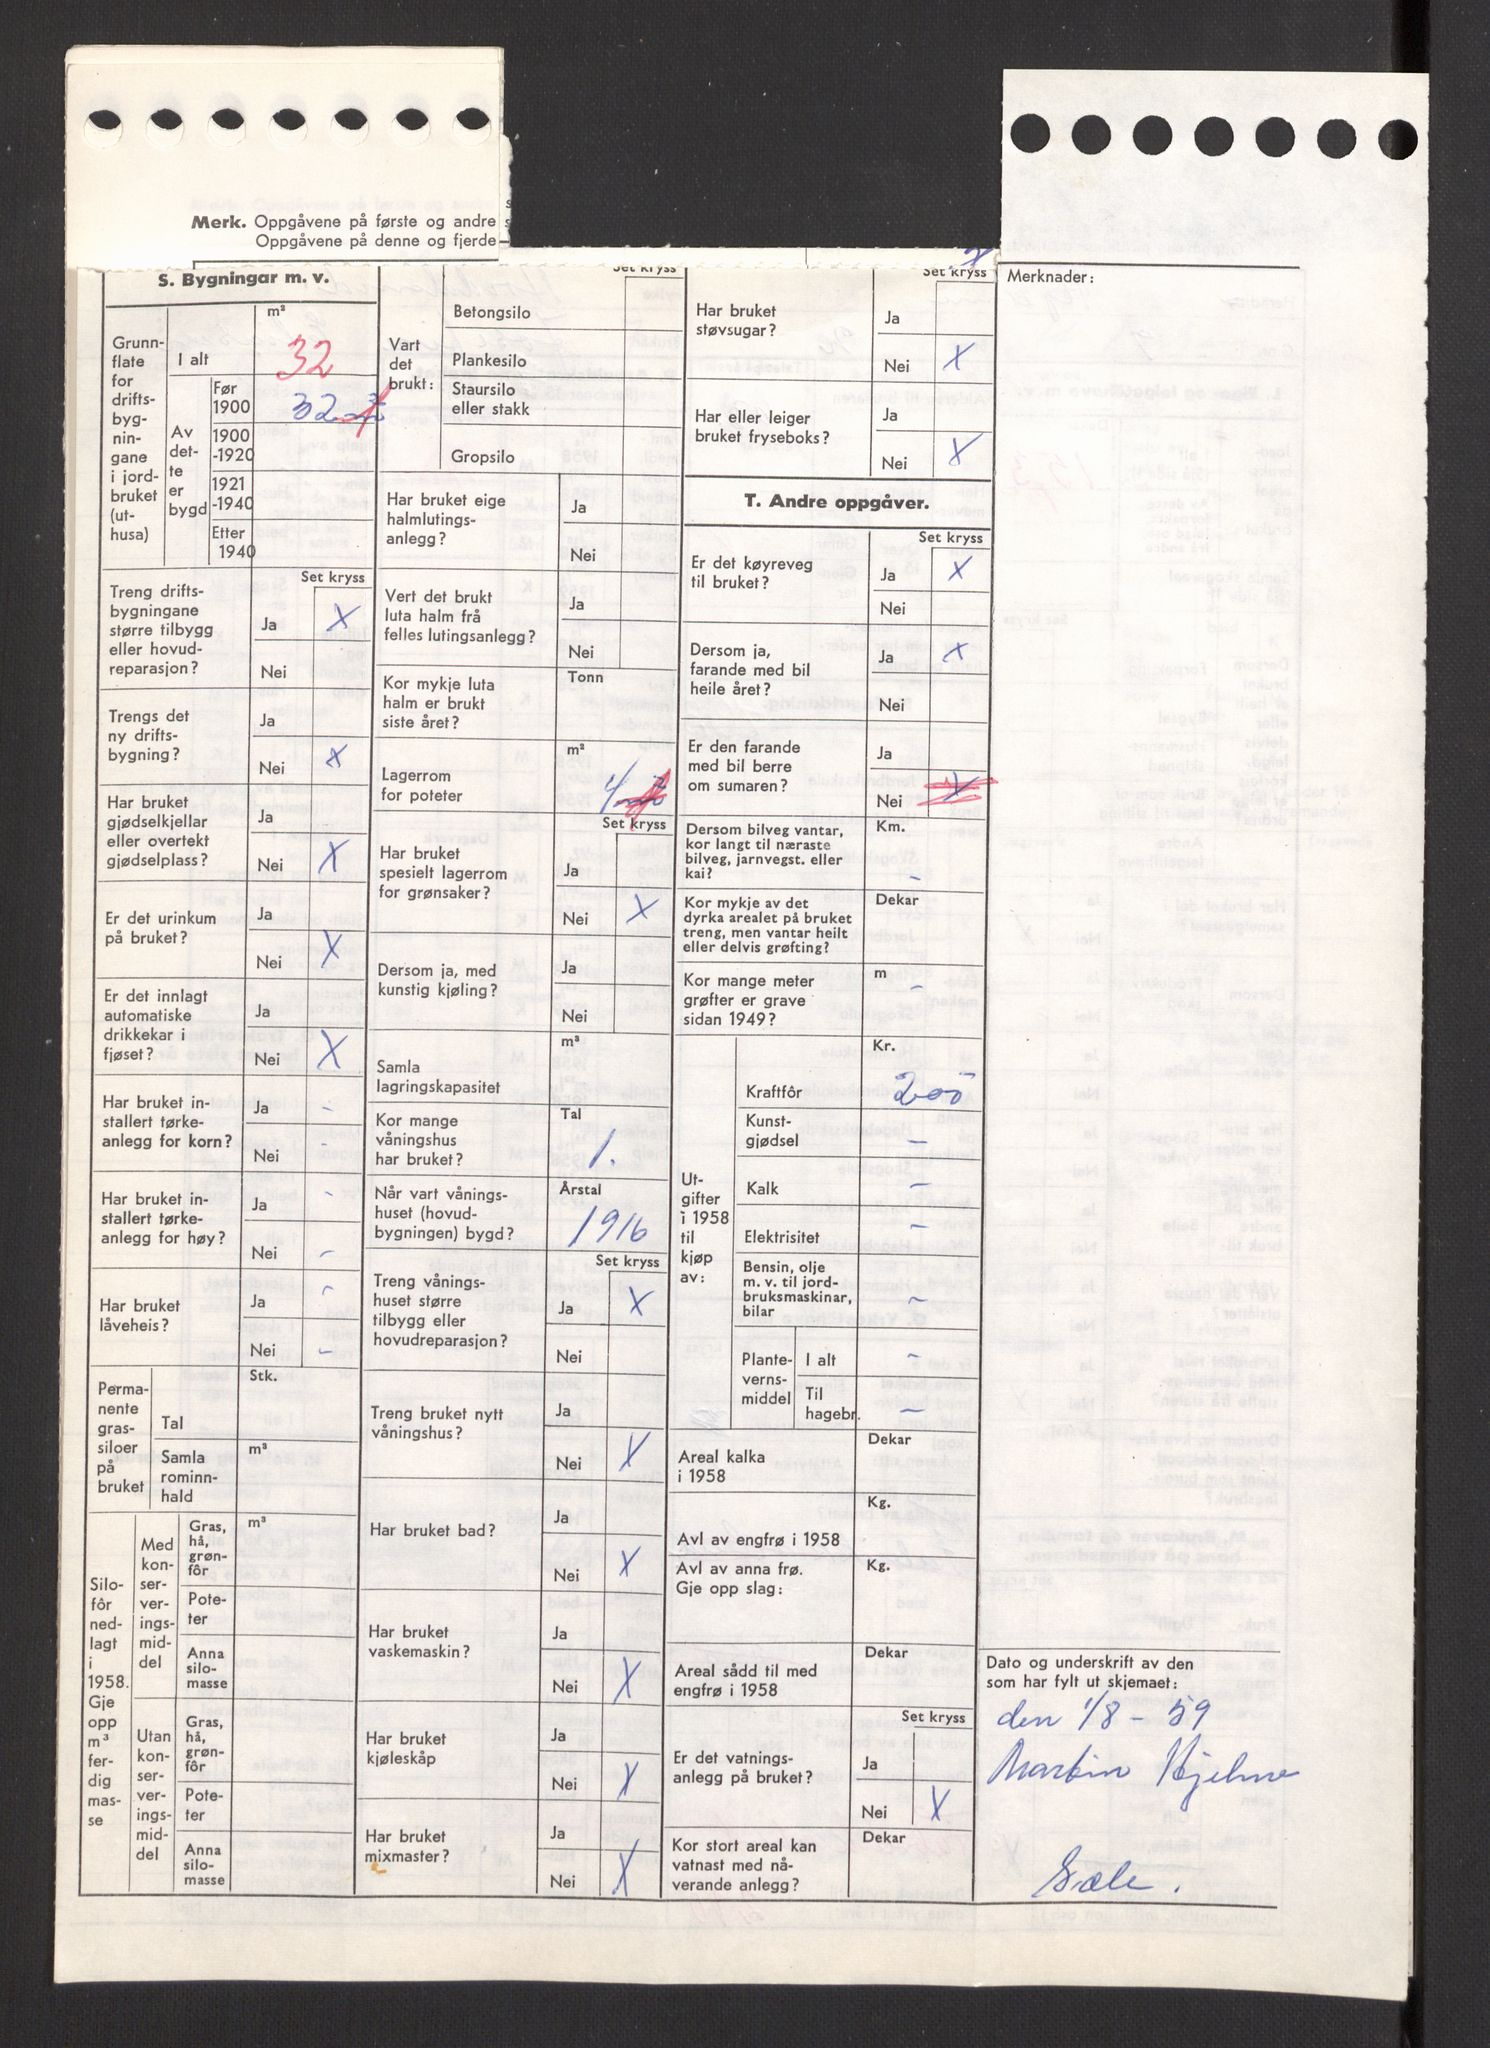 Merk. Oppgåvene på første og andre s
Oppgåvene på denne og fjerde
S. Bygningar m. v.
m²
Grunn-
flate
for
drifts-
byg-
nin-
gane
i jord-
bruket
(ut-
husa)
I alt
32
Av
det-
te
er
bygd
Før
1900
32 m²
1900
-1920
1921
-1940
Etter
1940
Set kryss
Treng drifts-
bygningane
større tilbygg
eller hovud-
reparasjon?
Ja X
Nei
Trengs det
ny drifts-
bygning?
Ja
Nei X
Har bruket
gjødselkjellar
eller overtekt
gjødselplass?
Ja
Nei X
Er det urinkum
på bruket?
Ja
Nei X
Er det innlagt
automatiske
drikkekar i
fjøset?
Ja
Nei X
Har bruket in-
stallert tørke-
anlegg for korn?
Ja -
Nei -
Har bruket in-
stallert tørke-
anlegg for høy?
Ja -
Nei -
Har bruket
låveheis?
Ja -
Nei -
Perma-
nente
gras-
siloer
på
bruket
Stk.
Tal
m³
Samla
rominn-
hald
Silo-
fôr
ned-
lagt
i
1958.
Gje
opp
m³
fer-
dig
mas-
se
Med
kon-
ser-
ver-
ings-
mid-
del
m³
Gras,
hå,
grøn-
fôr
Pote-
ter
Anna
silo-
masse
Utan
kon-
ser-
ver-
ings-
mid-
del
Gras,
hå,
grøn-
fôr
Pote-
ter
Anna
silo-
masse
Set kryss
Vart
det
brukt:
Betongsilo
Plankesilo
Staursilo
eller stakk
Gropsilo
Har bruket eige
halmlutings-
anlegg?
Ja
Nei
Vert det brukt
luta halm frå
felles lutingsanlegg?
Ja
Nei
Kor mykje luta
halm er brukt
siste året?
Tonn
Lagerrom
for poteter
m²
4 m²
Set kryss
Har bruket
spesielt lagerrom
for grønsaker?
Ja
Nei X
Dersom ja, med
kunstig kjøling?
Ja
Nei
Samla
lagringskapasitet
m³
Kor mange
våningshus
har bruket?
Tal
1.
Når vart vånings-
huset (hovud-
bygningen) bygd?
Årstal
1916
Set kryss
Treng vånings-
huset større
tilbygg eller
hovudreparasjon?
Ja X
Nei
Treng bruket nytt
våningshus?
Ja
Nei X
Har bruket bad?
Ja
Nei X
Har bruket
vaskemaskin?
Ja
Nei X
Har bruket
kjøleskåp
Ja
Nei X
Har bruket
mixmaster?
Ja
Nei X
X
Set kryss
Har bruket
støvsugar?
Ja
Nei X
Har eller leiger
bruket fryseboks?
Ja
Nei X
T. Andre oppgåver.
Set kryss
Er det køyreveg
til bruket?
Ja X
Nei
Dersom ja,
farande med bil
heile året?
Ja X
Nei
Er den farande
med bil berre
om sumaren?
Ja
Nei X
Dersom bilveg vantar,
kor langt til næraste
bilveg, jarnvegst. eller
kai?
Km.
-
Kor mykje av det
dyrka arealet på bruket
treng, men vantar heilt
eller delvis grøfting?
Dekar
Kor mange meter
grøfter er grave
sidan 1949?
m
-
Ut-
gifter
i 1958
til
kjøp
av:
Kr.
Kraftfôr 200
Kunst-
gjødsel -
Kalk -
Elektrisitet -
Bensin, olje
m. v. til jord-
bruksmaskinar,
bilar -
Plante-
verns-
middel
I alt -
Til
hagebr. -
Areal kalka
i 1958
Dekar
Avl av engfrø i 1958
Kg.
Avl av anna frø.
Gje opp slag:
Kg.
Areal sådd til med
engfrø i 1958
Dekar
Set kryss
Er det vatnings-
anlegg på bruket?
Ja
Nei X
Kor stort areal kan
vatnast med nå-
verande anlegg?
Dekar
Merknader:
Dato og underskrift av den
som har fylt ut skjemaet:
den 1/8 - 59
Martin Hjelme